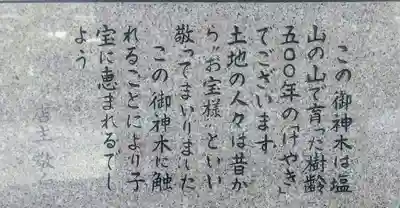 この御神木は塩
山の山で育った樹齢
五〇〇年の「けやき」
でございます
土地の人々は昔か
ら“お宝様”といい
敬ってまいりました
この御神木に触
れることにより子
宝に恵まれるでし
ょう
宮主敬